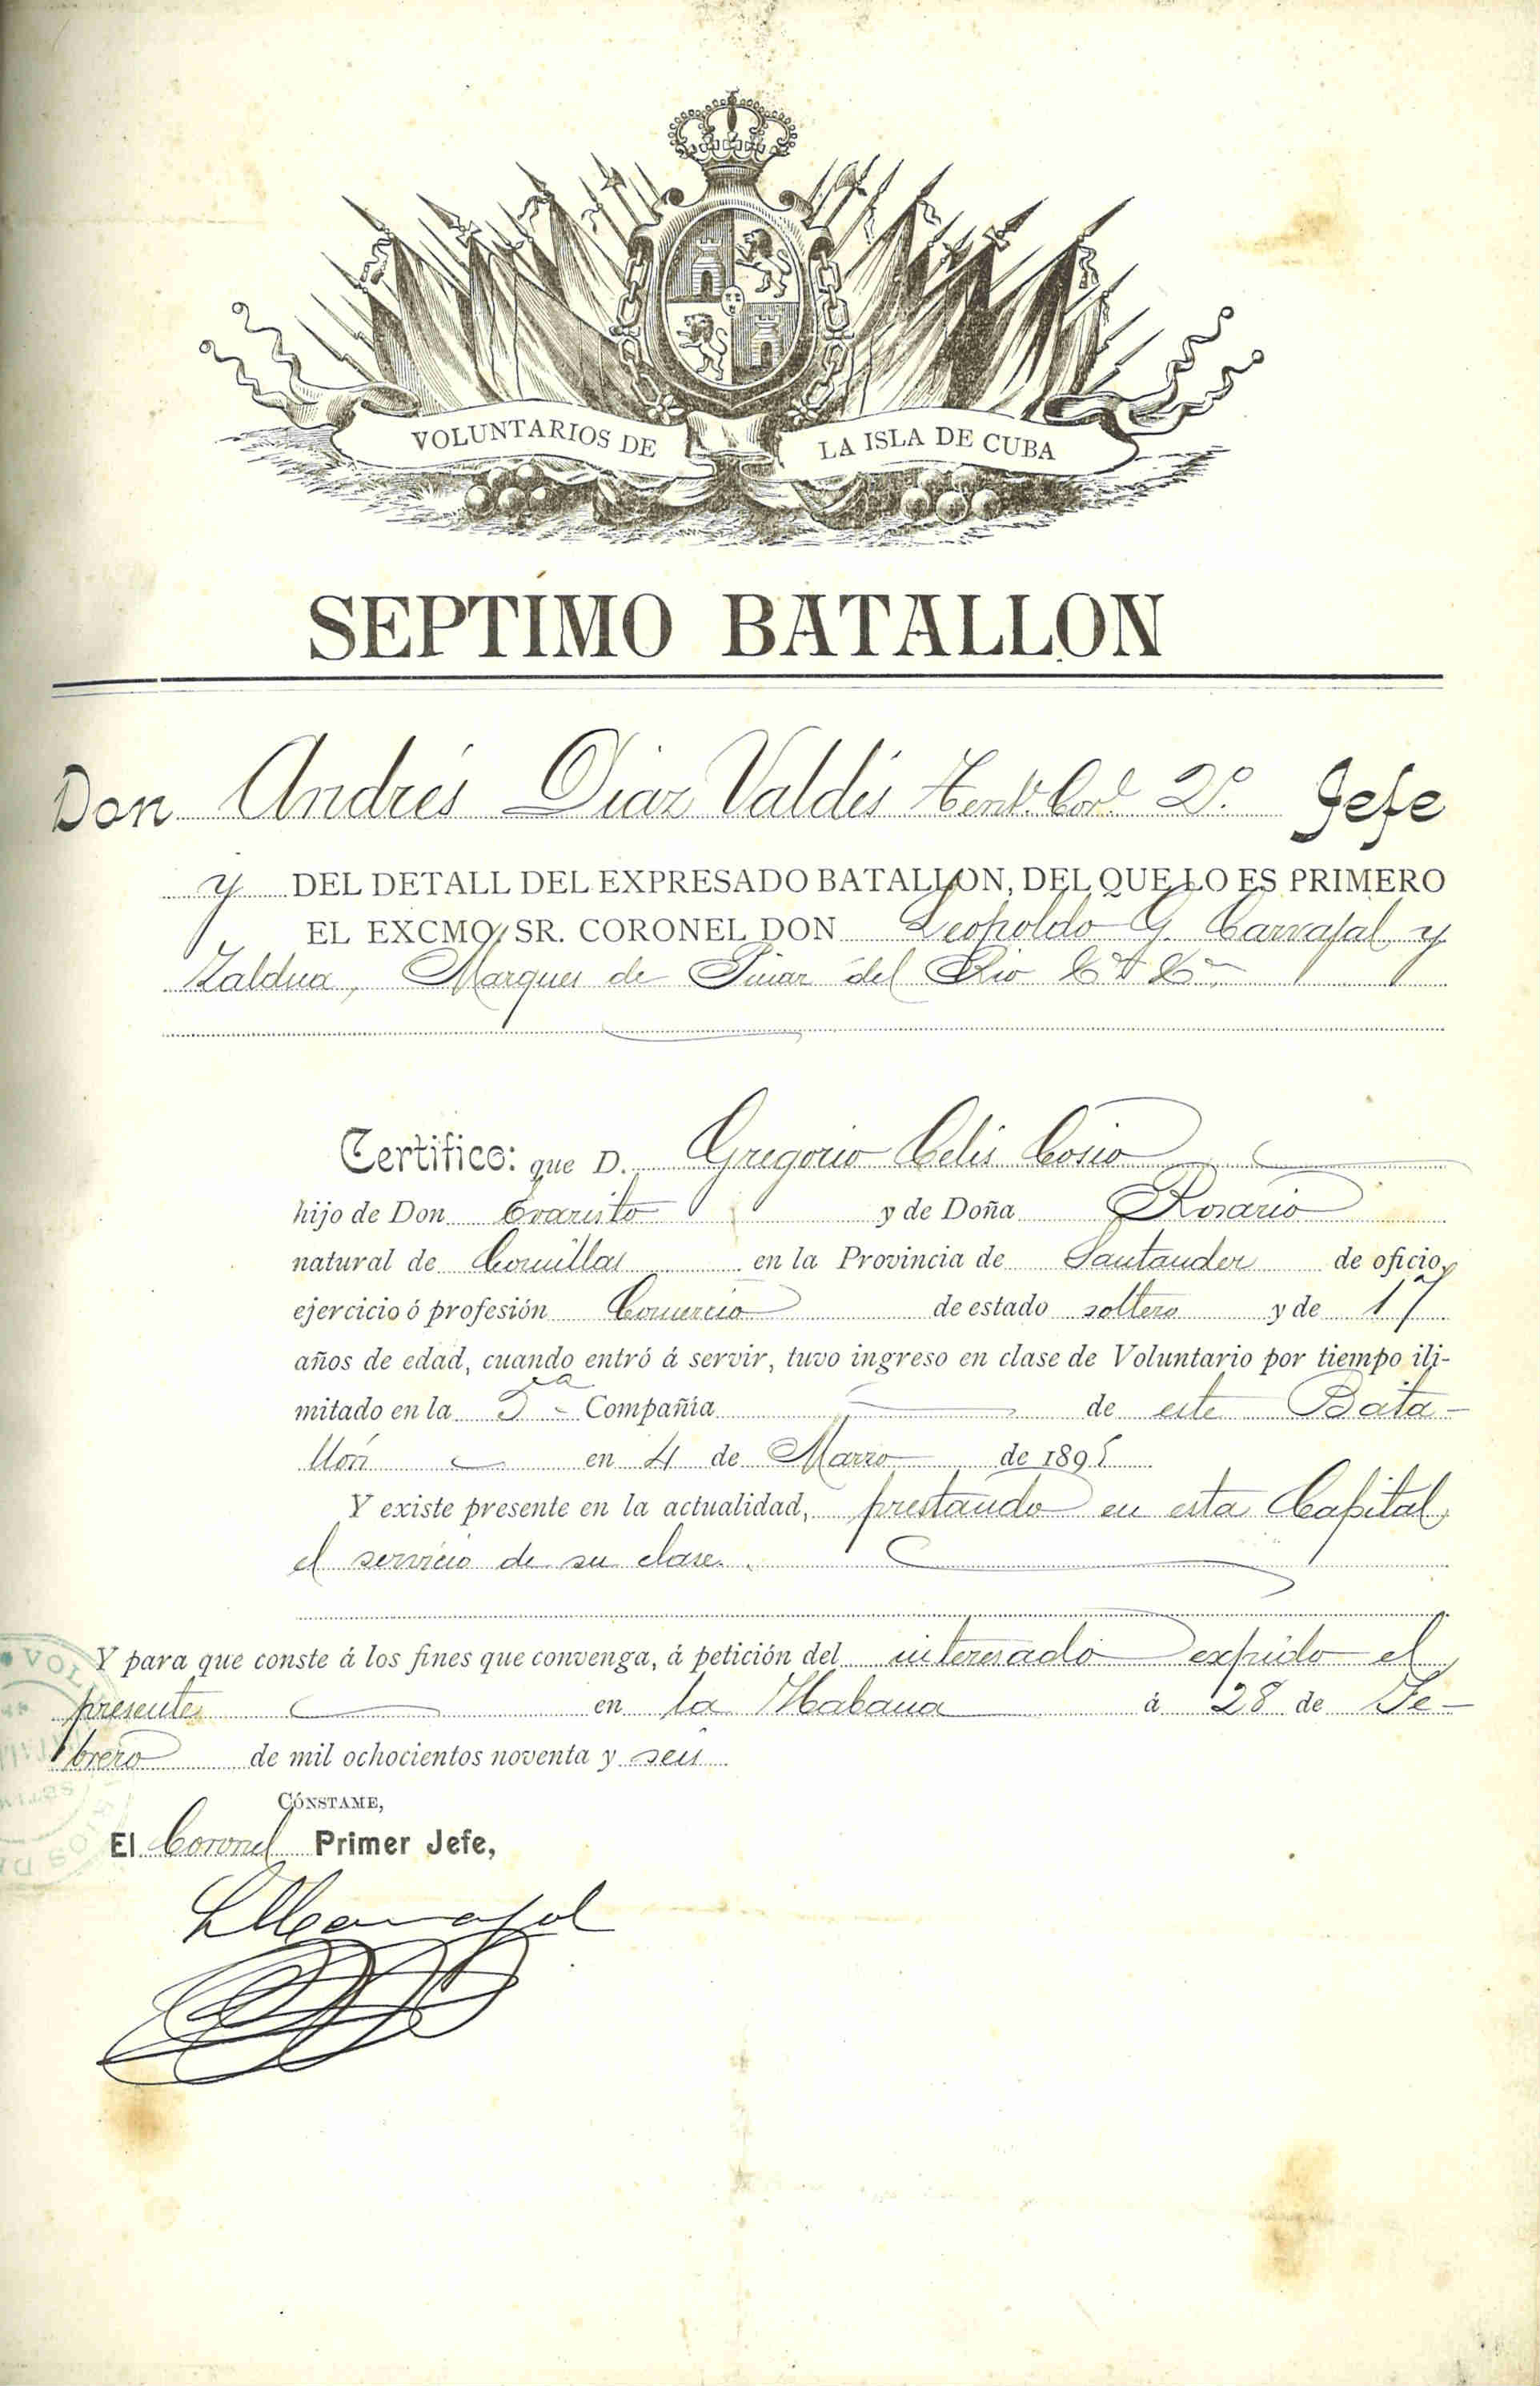 VOLUNTARIOS DE LA ISLA DE CUBA
SEPTIMO BATALLON
Don Andrés Diaz Valdés Tent. Corl. 2º. Jefe
y DEL DETALL DEL EXPRESADO BATALLON, DEL QUE LO ES PRIMERO
EL EXCMO. SR. CORONEL DON Leopoldo G. Carvajal y
Zaldua, Marques de Pinar del Rio
Certifico: que D. Gregorio Celis Cosio
hijo de Don Evaristo y de Doña Rosario
natural de Comillas en la Provincia de Santander de oficio,
ejercicio ó profesión Comercio de estado soltero y de 17
años de edad, cuando entró á servir, tuvo ingreso en clase de Voluntario por tiempo ili-
mitado en la 5ª Compañia de este Bata-
llón en 4 de Marzo de 1895
Y existe presente en la actualidad, prestando en esta Capital
el servicio de su clase.
Y para que conste á los fines que convenga, á petición del interesado expido el
presente en la Habana á 28 de Fe-
brero de mil ochocientos noventa y seis
CÓNSTAME,
El Coronel Primer Jefe,
Carvajal
VOL